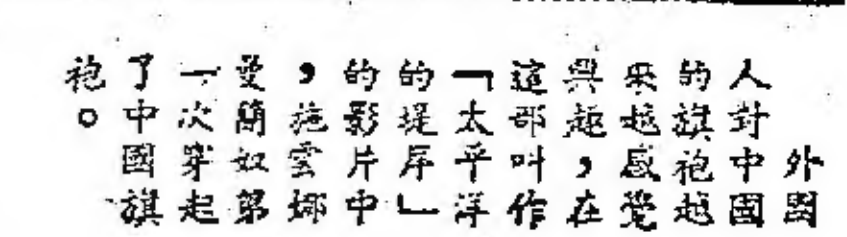 外國
人對中國
的旗袍越
來越感覺
興趣，在
這部叫作
「太平洋
的堤岸」
的影片中
，施雲娜
愛簡奴第
一次穿起
了中國旗
袍。